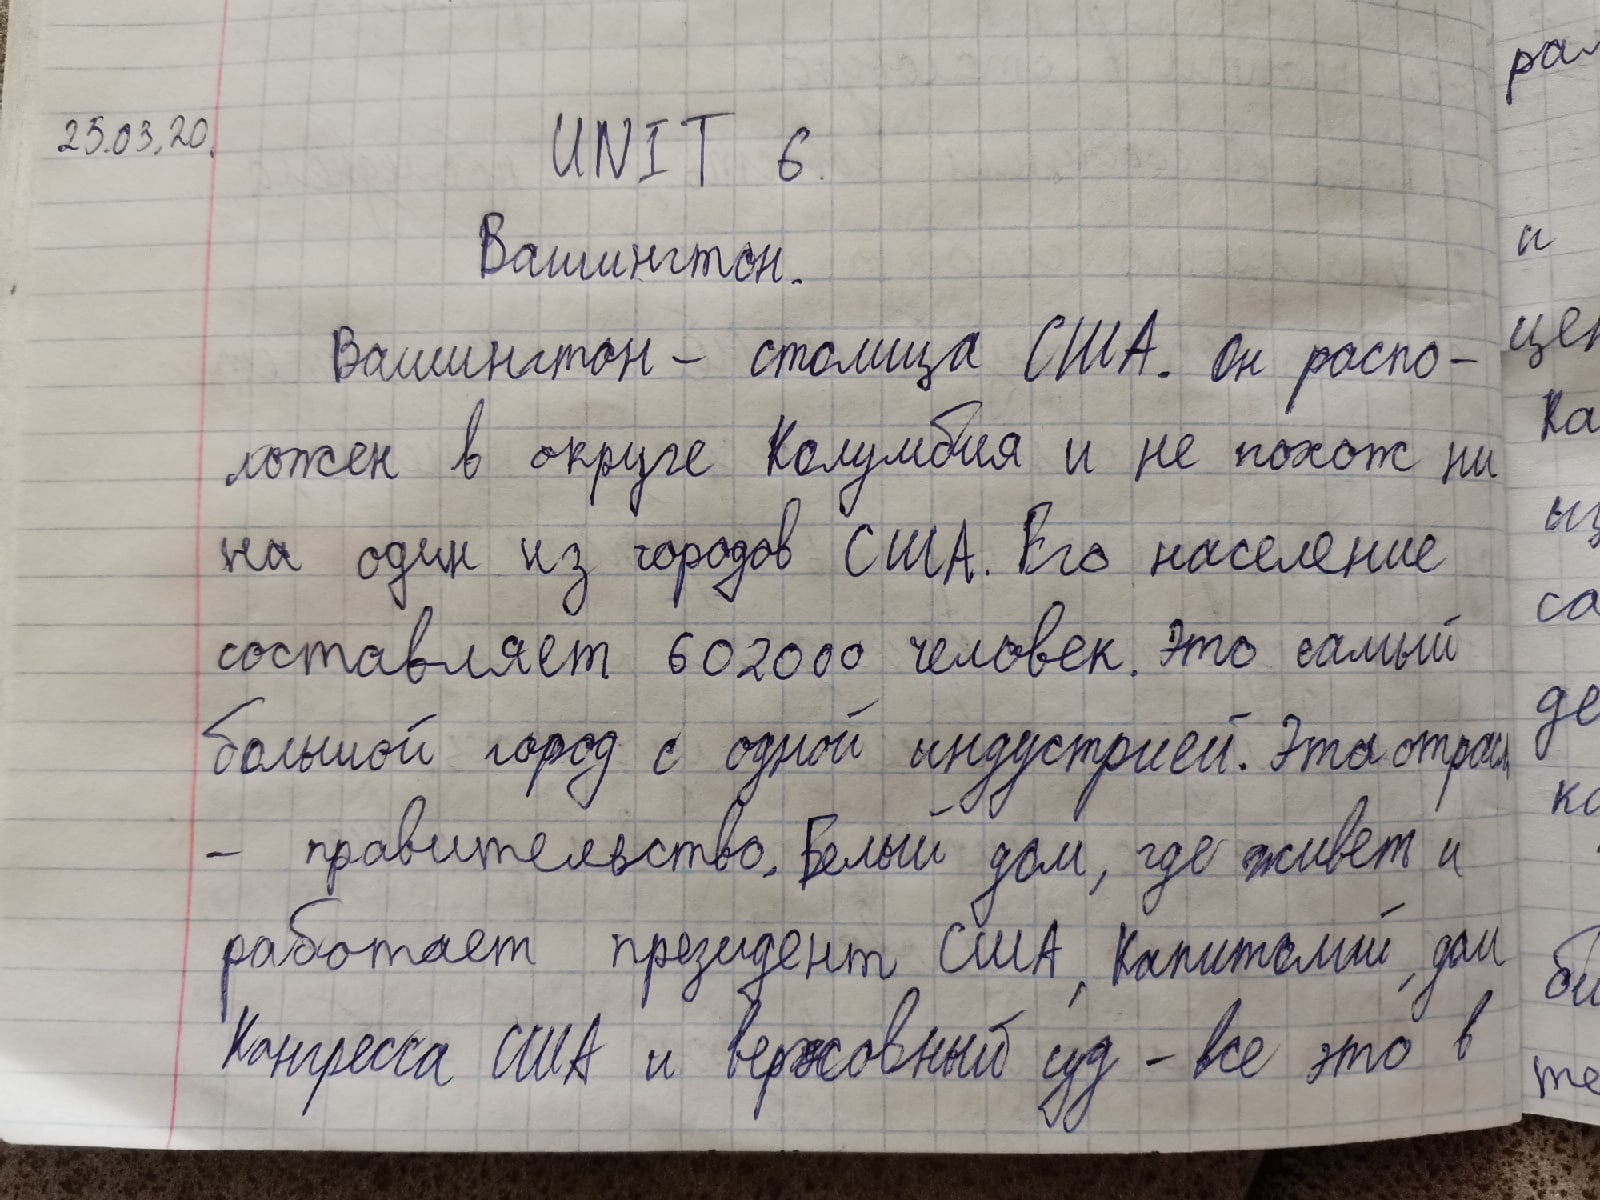 25.03.20.
UNIT 6.
Вашингтон.
Вашингтон – столица США. Он распо-
ложен в округе Колумбия и не похож ни
на один из городов США. Его население
составляет 602000 человек. Это самый
большой город с одной индустрией. Эта отрасль
– правительство. Белый дом, где живет и
работает президент США, Капитолий, дом
Конгресса США и верховный суд – все это в
и